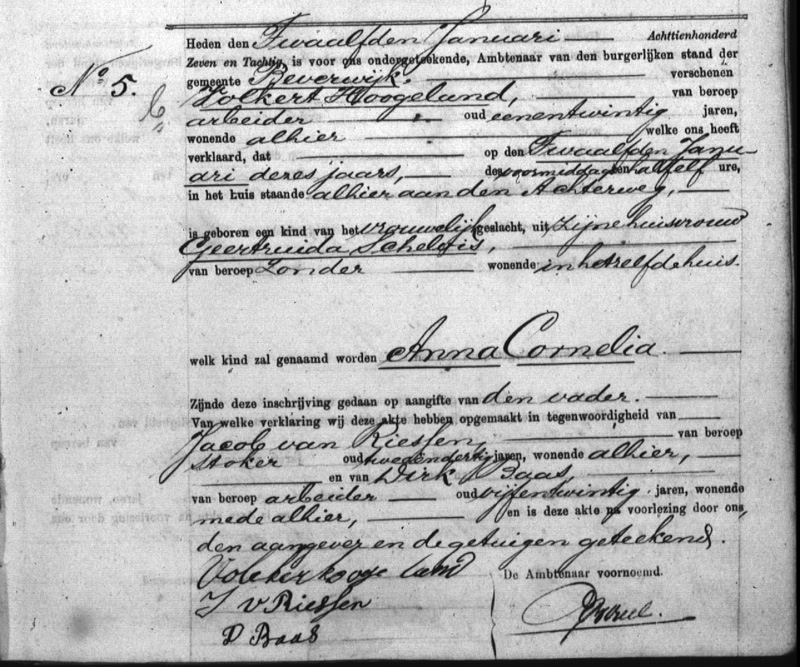 Heden den Twaalfden Januari Achttienhonderd
Zeven en Tachtig, is voor ons ondergeteekende, Ambtenaar van den burgerlijken stand der
gemeente Beverwijk. verschenen
No. 5.
Volkert Hoogeland, van beroep
arbeider oud eenentwintig jaren,
wonende alhier welke ons heeft
verklaard, dat op den Twaalfden Janu-
ari dezes jaars, des voormiddags ten half elf ure,
in het huis staande alhier aan den Achterweg,
is geboren een kind van het vrouwelijk geslacht, uit zijne huisvrouw
Geertruida Scheltis,
van beroep Zonder wonende in hetzelfde huis.
welk kind zal genaamd worden Anna Cornelia.
Zijnde deze inschrijving gedaan op aangifte van den vader.
Van welke verklaring wij deze akte hebben opgemaakt in tegenwoordigheid van
Jacob van Riessen, van beroep
Stoker oud tweeendertig jaren, wonende alhier,
en van Dirk Baas,
van beroep arbeider oud vijfentwintig jaren, wonende
mede alhier, en is deze akte na voorlezing door ons,
den aangever en de getuigen geteekend.
Volkerhooge land
De Ambtenaar voornoemd.
J v Riessen
D Baas